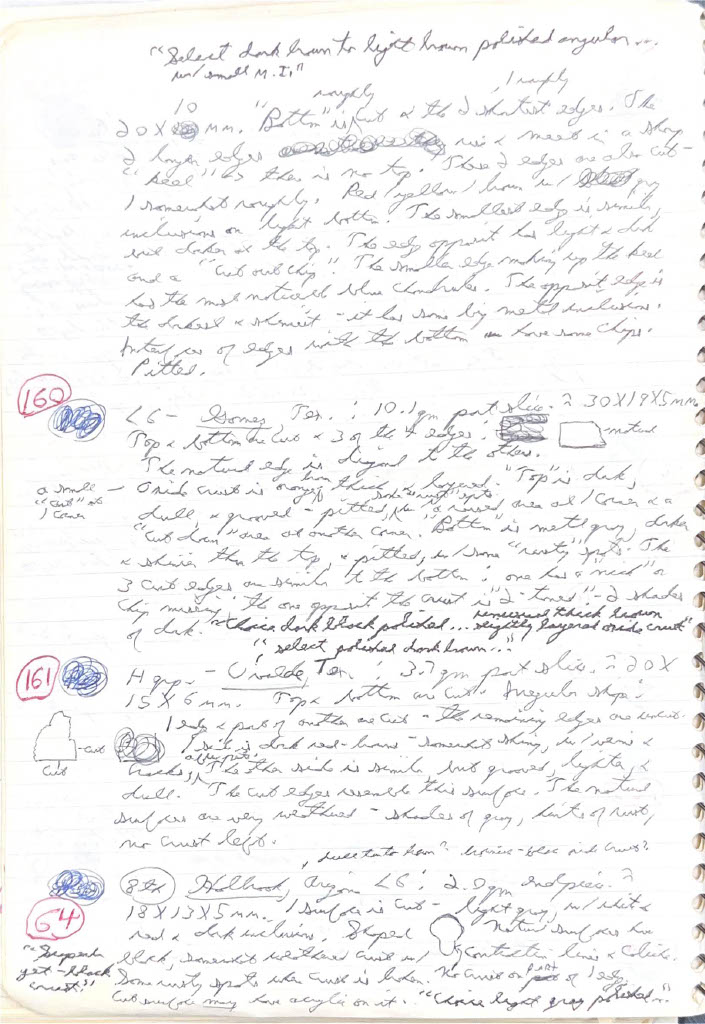 "Select dark brown to light brown polished angular ...
w/ small M.I."
roughly , 1 roughly
10
20 X mm. "Bottom" is cut & the 2 shortest edges. The
2 longer edges rise & meet in a sharp
"keel" as there is no top. These 2 edges are also cut -
1 somewhat roughly. Red/yellow/brown w/ gray
inclusions on light bottom. The smallest edge is similar,
but darker at the top. The edge opposite has light & dark
and a "cut out chip". The smaller edge making up the keel
has the most noticeable blue chondrules. The opposite edge is
the darkest & shiniest - it has some big metal inclusions.
Interfaces of edges with the bottom have some chips.
Pitted.
160
L6 - Gomez, Tex. : 10.1 gm part slice. ≈ 30X19X5 mm.
Top & bottom are cut & 3 of the 4 edges: - natural
The natural edge is diagonal to the others.
a small "cut" at 1 corner
Oxide crust is orange/brown thick & layered. "Top" is dark,
some "rust" spots
dull, & grooved - pitted, w/ a raised area at 1 corner & a
"cut down" area at another corner. "Bottom" is metal gray, darker
& shinier than the top, & pitted, w/ some "rusty" spots. The
3 cut edges are similar to the bottom: one has a "nick" or
chip missing, the one opposite the crust is "2-toned" - 2 shades
of dark. "Choice dark black polished... unusual thick brown
slightly layered oxide crust"
"select polished dark brown..."
161
H group - Uvalde, Tex. 3.7 gm part slice. ≈ 20X
15 X 6 mm. Top & bottom are cut. Irregular shape:
1 edge & part of another are cut - the remaining edges are uncut.
- cut
cut
1 side is dark red-brown - somewhat shiny, w/ veins &
cracks, The other side is similar but grooved, lighter, &
dull. The cut edges resemble this surface. The natural
surfaces are very weathered - shades of gray, hints of rust,
no crust left.
54
Holbrook, Arizona L6: 2.0 gm endpiece. ≈
18X13X5 mm. 1 surface is cut - light gray, w/ white &
red & dark inclusions. Shaped Natural surfaces have
black, somewhat weathered crust w/ contraction lines &
Some rusty spots where crust is broken. No crust on part of 1 edge.
Cut surface may have acrylic on it. "Choice light gray polished..."
"Superb
jet-black
crust."